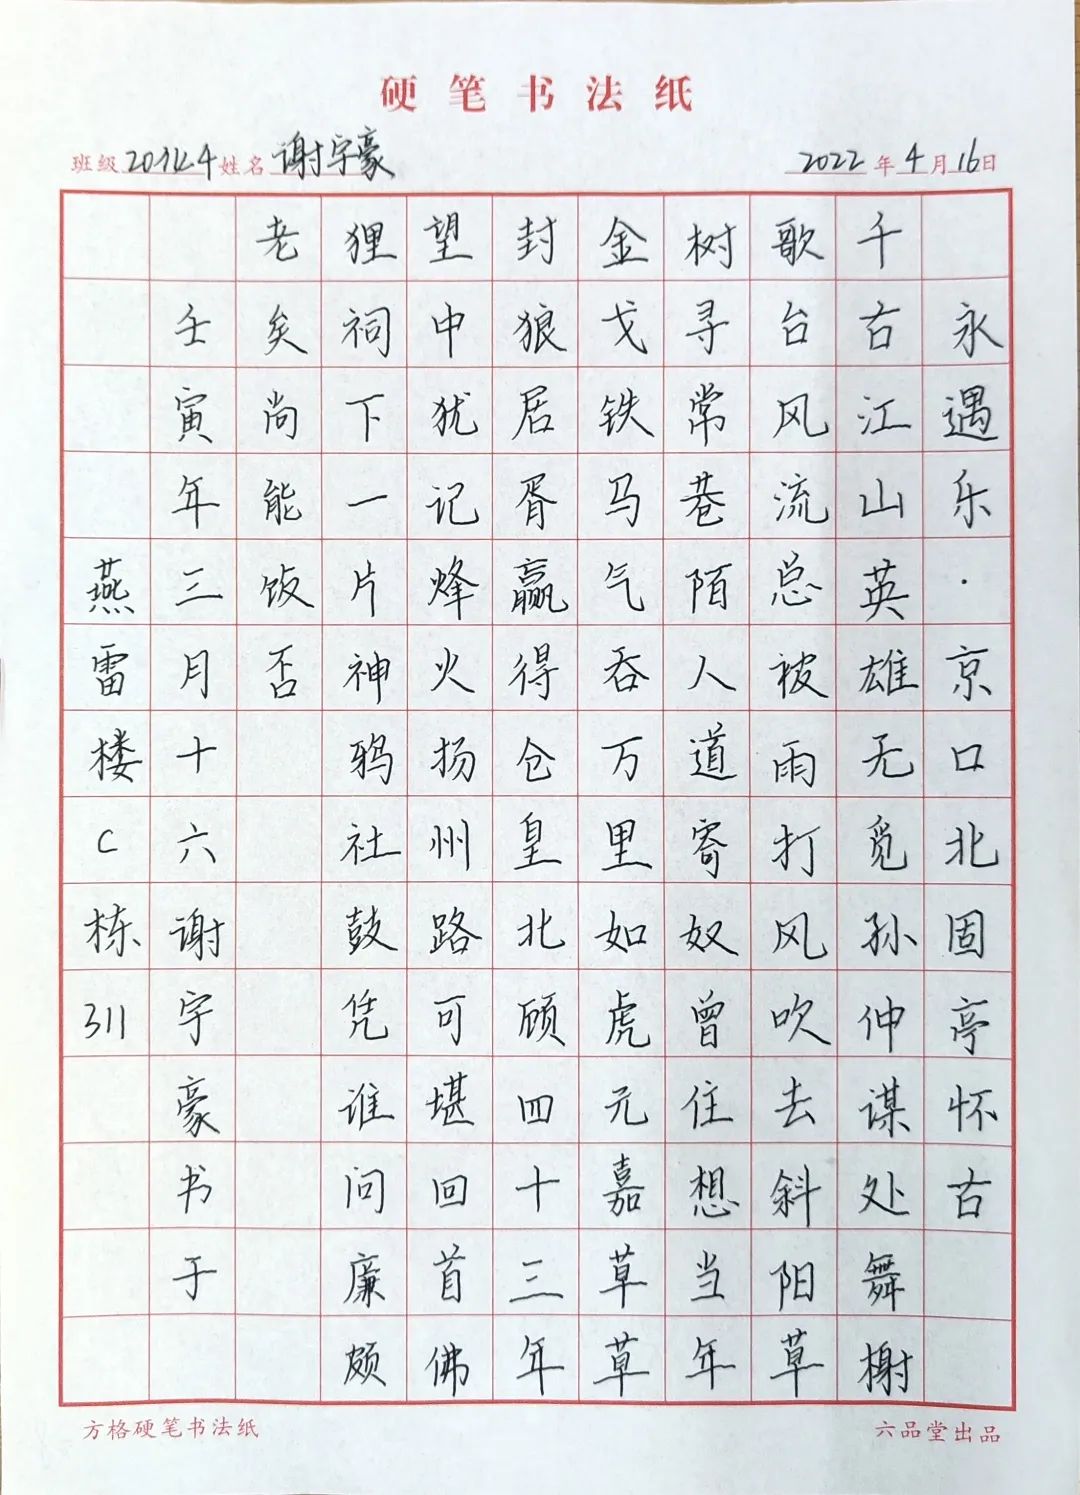 硬笔书法纸
班级 姓名 谢宇豪 2022年4月16日
永遇乐·京口北固亭怀古
千古江山英雄无觅孙仲谋处舞榭
歌台风流总被雨打风吹去斜阳草
树寻常巷陌人道寄奴曾住想当年
金戈铁马气吞万里如虎元嘉草草
封狼居胥赢得仓皇北顾四十三年
望中犹记烽火扬州路可堪回首佛
狸祠下一片神鸦社鼓凭谁问廉颇
老矣尚能饭否
壬寅年三月十六谢宇豪书于
燕雷楼C栋311
方格硬笔书法纸 六品堂出品